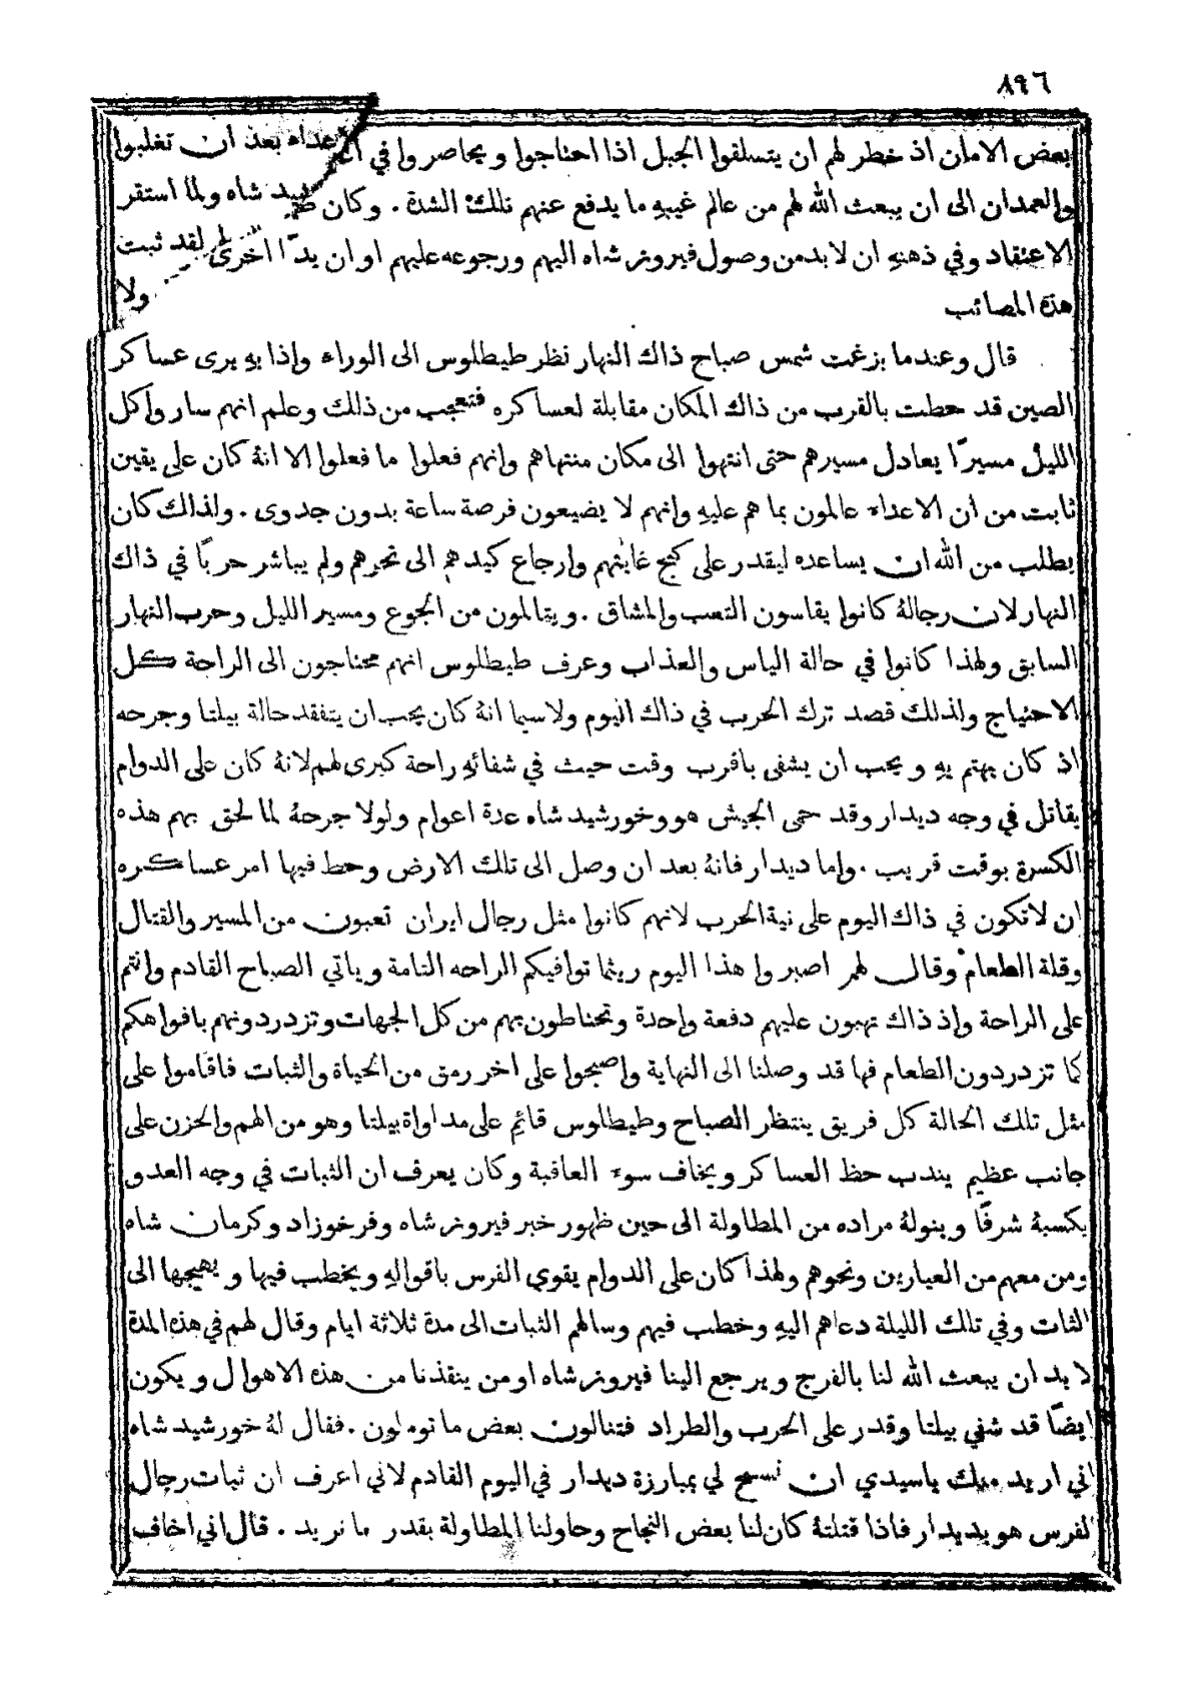 ٨٩٦
بعض الامان اذ خطر لهم ان يتسلقوا الجبل اذا احتاجوا ويحاصروا في بعد ان تغلبوا
والعمدان الى ان يبعث الله لهم من عالم غيبه ما يدفع عنهم تلك الشدة . وكان شاه ولما استقر
الاعتقاد وفي ذهنه ان لا بد من وصول فيروز شاه اليهم ورجوعه عليهم او ان يدًا اخرى لقد ثبت
هذه المصائب ولا
قال وعندما بزغت شمس صباح ذاك النهار نظر طيطلوس الى الوراء واذا به يرى عساكر
الصين قد حطت بالقرب من ذاك المكان مقابلة لعساكره فتعجب من ذلك وعلم انهم ساروا كل
الليل مسيرًا يعادل مسيرهم حتى انتهوا الى مكان منتهاهم وانهم فعلوا ما فعلوا الا انهُ كان على يقين
ثابت من ان الاعداء عالمون بما هم عليهِ وانهم لا يضيعون فرصة ساعة بدون جدوى . ولذلك كان
يطلب من الله ان يساعده ليقدر على كبح غايتهم وارجاع كيدهم الى نحرهم ولم يباشر حربًا في ذاك
النهار لان رجالهُ كانوا يقاسون التعب والمشاق . ويتالمون من الجوع ومسير الليل وحرب النهار
السابق ولهذا كانوا في حالة الياس والعذاب وعرف طيطلوس انهم محتاجون الى الراحة كل
الاحتياج ولذلك قصد ترك الحرب في ذاك اليوم ولاسيما انهُ كان يحب ان يتفقد حالة بيلتا وجرحه
اذ كان يهتم بهِ ويحب ان يشفى باقرب وقت حيث في شفائهِ راحة كبرى لهم لانهُ كان على الدوام
يقاتل في وجه ديدار وقد حمى الجيش هو وخورشيد شاه عدة اعوام ولولا جرحهُ لما لحق بهم هذه
الكسرة بوقت قريب . واما ديدار فانهُ بعد ان وصل الى تلك الارض وحط فيها امر عساكره
ان لا تكون في ذاك اليوم على نية الحرب لانهم كانوا مثل رجال ايران تعبون من المسير والقتال
وقلة الطعام وقال لهم اصبروا هذا اليوم ريثما توافيكم الراحه التامة وياتي الصباح القادم وانتم
على الراحة واذ ذاك تهبون عليهم دفعة واحدة وتحتاطون بهم من كل الجهات وتزدردونهم بافواهكم
كما تزدردون الطعام فها قد وصلنا الى النهاية واصبحوا على اخر رمق من الحياة والثبات فاقاموا على
مثل تلك الحالة كل فريق ينتظر الصباح وطيطلوس قائمٌ على مداواة بيلتا وهو من الهم والحزن على
جانب عظيم يندب حظ العساكر ويخاف سوء العاقبة وكان يعرف ان الثبات في وجه العدو
يكسبهُ شرفًا وينولهُ مراده من المطاولة الى حين ظهور خبر فيروز شاه وفرخوزاد وكرمان شاه
ومن معهم من العيارين ونحوهم ولهذا كان على الدوام يقوي الفرس باقوالهِ ويخطب فيها ويهيجها الى
الثات وفي تلك الليلة دعاهم اليهِ وخطب فيهم وسالهم الثبات الى مدة ثلاثة ايام وقال لهم في هذه المدة
لا بد ان يبعث الله لنا بالفرج ويرجع الينا فيروز شاه او من ينقذنا من هذه الاهوال ويكون
ايضًا قد شفي بيلتا وقدر على الحرب والطراد فتنالون بعض ما توملون . فقال لهُ خورشيد شاه
اني اريد منك ياسيدي ان تسمح لي بمبارزة ديدار في اليوم القادم لاني اعرف ان ثبات رجال
لفرس هو بديدار فاذا قتلتهُ كان لنا بعض النجاح وحاولنا المطاولة بقدر ما نريد . قال اني اخاف